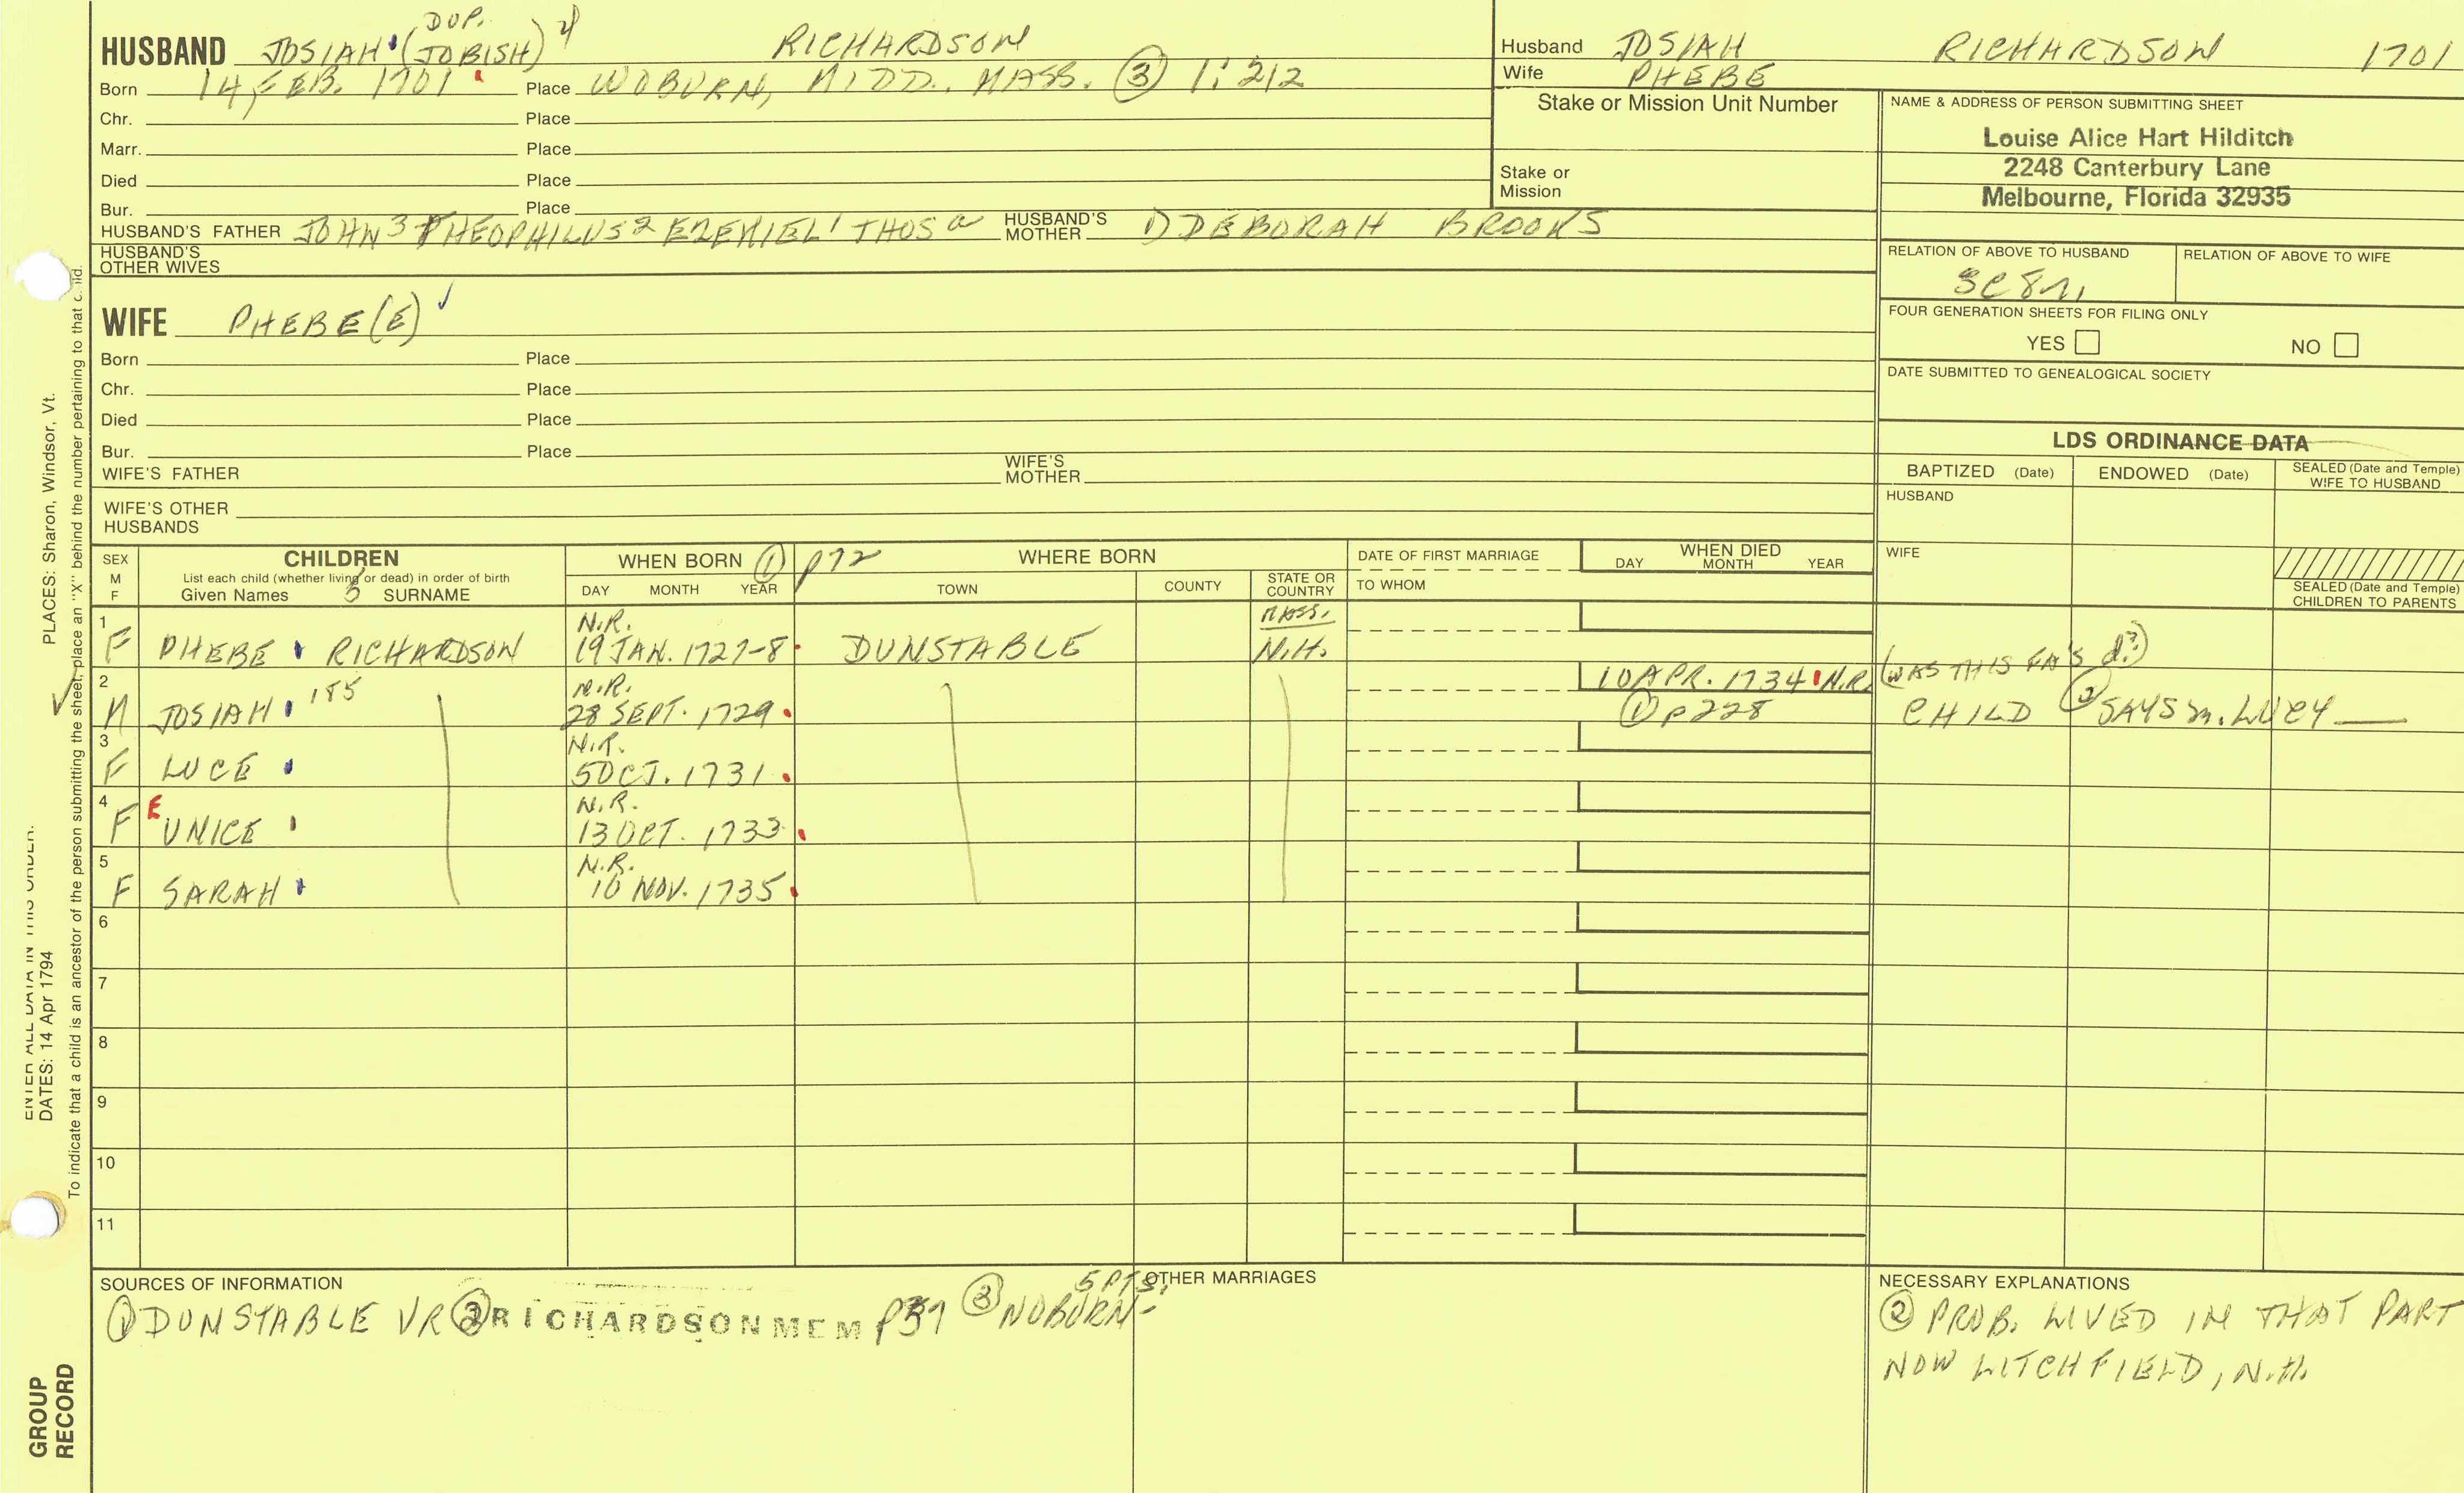 DUP.
HUSBAND JOSIAH (JOBISH) 4 RICHARDSON
Born 14 FEB. 1701 Place WOBURN, MIDD. MASS. ③ 1:212
Chr. Place
Marr. Place
Died Place
Bur. Place
HUSBAND'S FATHER JOHN 3 THEOPHILUS 2 EZEKIEL 1 THOS a HUSBAND'S MOTHER 1) DEBORAH BROOKS
HUSBAND'S OTHER WIVES
WIFE PHEBE(E)
Born Place
Chr. Place
Died Place
Bur. Place
WIFE'S FATHER WIFE'S MOTHER
WIFE'S OTHER HUSBANDS
Husband JOSIAH RICHARDSON 1701
Wife PHEBE
Stake or Mission Unit Number
Stake or Mission
NAME & ADDRESS OF PERSON SUBMITTING SHEET
Louise Alice Hart Hilditch
2248 Canterbury Lane
Melbourne, Florida 32935
RELATION OF ABOVE TO HUSBAND RELATION OF ABOVE TO WIFE
3C 8
FOUR GENERATION SHEETS FOR FILING ONLY
YES NO
DATE SUBMITTED TO GENEALOGICAL SOCIETY
LDS ORDINANCE DATA
BAPTIZED (Date) ENDOWED (Date) SEALED (Date and Temple) WIFE TO HUSBAND
HUSBAND
WIFE
SEALED (Date and Temple) CHILDREN TO PARENTS
SEX M F
CHILDREN
List each child (whether living or dead) in order of birth
Given Names 5 SURNAME
WHEN BORN ① p72
DAY MONTH YEAR
WHERE BORN
TOWN COUNTY STATE OR COUNTRY
DATE OF FIRST MARRIAGE
TO WHOM
WHEN DIED
DAY MONTH YEAR
1 N.R. MASS.
F PHEBE RICHARDSON 19 JAN. 1727-8 DUNSTABLE N.H.
2 N.R. 10 APR. 1734 N.R. (WAS THIS FA'S d?)
M JOSIAH 185 28 SEPT. 1729 ① p228 CHILD ② SAYS m. LUCY
3 N.R.
F LUCE 5 OCT. 1731
4 N.R.
F EUNICE 13 OCT. 1733
5 N.R.
F SARAH 10 NOV. 1735
6
7
8
9
10
11
SOURCES OF INFORMATION
① DUNSTABLE VR ② RICHARDSON MEM P37 ③ WOBURN- 5 PTS.
OTHER MARRIAGES
NECESSARY EXPLANATIONS
② PROB. LIVED IN THAT PART
NOW LITCHFIELD, N.H.
PLACES: Sharon, Windsor, Vt.
ENTER ALL DATA IN THIS ORDER:
DATES: 14 Apr 1794
To indicate that a child is an ancestor of the person submitting the sheet, place an "X" behind the number pertaining to that child.
GROUP
RECORD